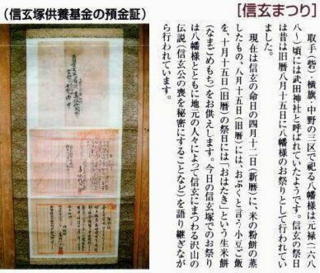 (信玄塚供養基金の預金証)
[信玄まつり]
取手(砦)・横旗・中野の三区で祀る八幡様は元禄(一六八
八~)頃には武田神社と呼ばれていたようです。信玄の祭日
は昔は旧暦八月十五日に八幡様のお祭りとして行われてい
ました。
現在は信玄の命日の四月十二日(新暦)に、米の粉餅の蒸
したもの、八月十五日(旧暦)には、おぶくと言う小豆ご飯
を、十月十五日(旧暦)の祭日には「おはたき」という生米餅
(なまごめもち)をお供えします。今日の信玄塚でのお祭り
は八幡様とともに地元の人々によって信玄にまつわる沢山の
伝説(信玄公の喪を秘密にすることなど)を語り継ぎなが
ら行われています。